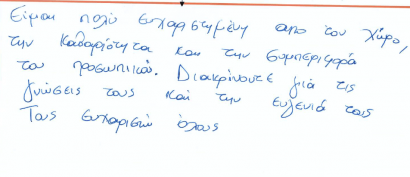 Είμαι πολύ ευχαριστημένη απο τον χώρο,
την καθαριότητα και την συμπεριφορά
του προσωπικού. Διακρίνοντε γιά τις
γνώσεις τους και την ευγενιά τους
Τους ευχαριστώ όλους